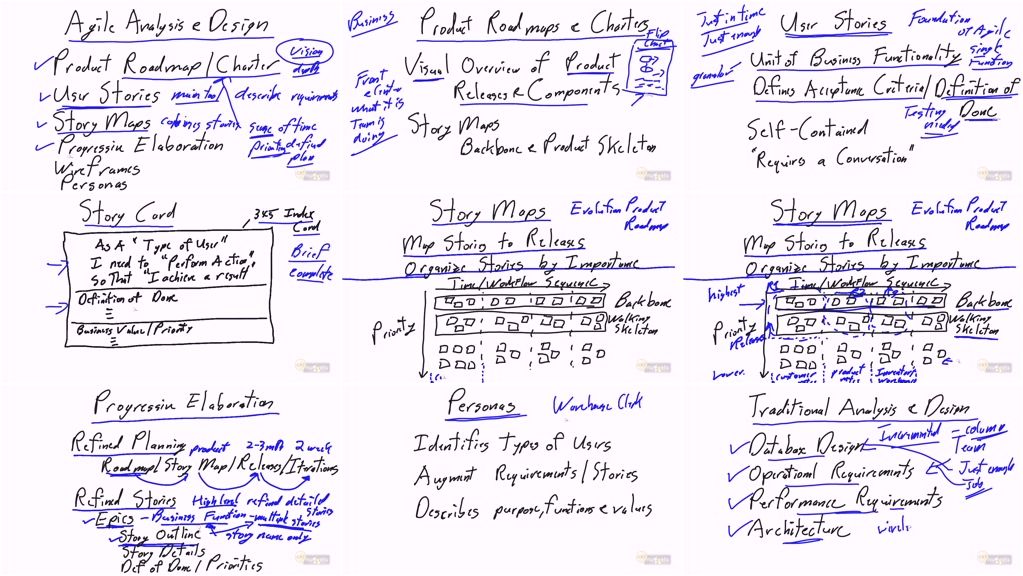 Agile Analysis & Design
Product Roadmap/Charter
Vision
draft
User Stories main tool describe requirements
Story Maps combines stories
Progressive Elaboration
Sense of time
Priority defined
plan
Wireframes
Personas
Business
Product Roadmaps & Charters
Flip
Chart
Visual Overview of Product
Releases & Components
what it is
Team is
doing
Story Maps
Backbone & Product Skeleton
Just in time
Just enough
granular
User Stories
Foundation
of Agile
single
Function
Unit of Business Functionality
Defines Acceptance Criteria/Definition of
Done
Testing
Self-Contained
"Requires a Conversation"
Story Card
3x5 Index
Card
As A "Type of User"
I need to "Perform Action",
So That "I achieve a result"
Brief
complete
Definition of Done
Business Value/Priority
Story Maps
Evolution Product
Roadmap
Map Stories to Releases
Organize Stories by Importance
Time/Workflow Sequence
Backbone
Walking
Skeleton
Priority
Story Maps
Evolution Product
Roadmap
Map Stories to Releases
Organize Stories by Importance
R1 Time/Workflow Sequence
highest
Backbone
Walking
Skeleton
Priority
Release
Lower
customer
product
Inventory
warehouse
Progressive Elaboration
Refined Planning
product 2-3 mth 2 week
Roadmap/Story Map/Release/Iterations
Refined Stories High level refined detailed
stories
Epics - Business Function - multiple stories
Story Outline story name only
Story Details
Def of Done/Priorities
Personas
Warehouse Clerk
Identifies Types of Users
Augment Requirements/Stories
Describes purpose, functions & values
Traditional Analysis & Design
Database Design
Incremental - column
Team
Operational Requirements
Just enough
Performance Requirements
Architecture